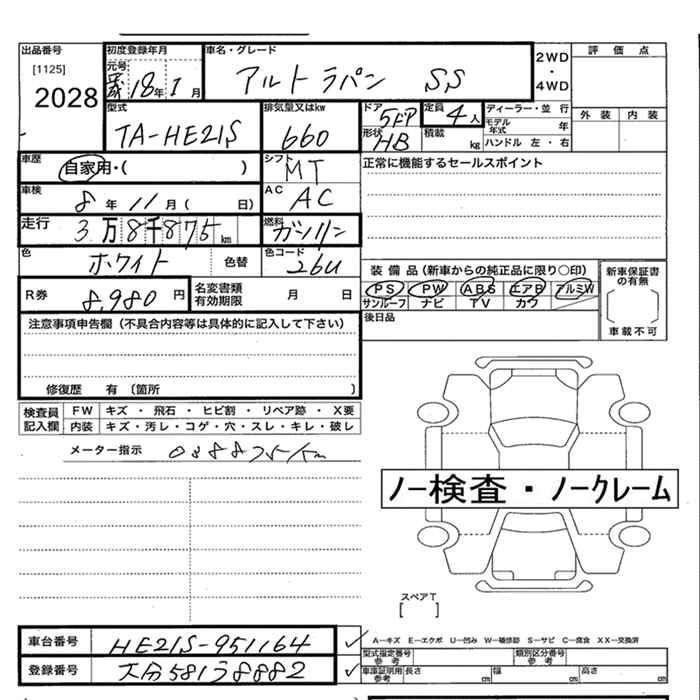 出品番号 初度登録年月 車名・グレード 2WD・4WD 評価点
[1125] 元号 18年1月 アルト ラパン SS
2028
型式 排気量又はkw ドア 5ドア 定員 4人 ディーラー・並行 外装 内装
TA-HE21S 660 形状 HB 積載 kg モデル年式 年
ハンドル 左・右
車歴 自家用・( ) シフト MT 正常に機能するセールスポイント
車検 8年11月( 日) AC AC
走行 3万8千875km 燃料 ガソリン
色 ホワイト 色替 色コード 26U 装備品(新車からの純正品に限り○印) 新車保証書の有無
R券 8,980円 名変書類有効期限 月 日 PS PW ABS エアB アルミW
サンルーフ ナビ TV カワ 車載不可
注意事項申告欄(不具合内容等は具体的に記入して下さい) 後日品
修復歴 有(箇所 )
検査員記入欄 FW キズ・飛石・ヒビ割・リペア跡・X要
内装 キズ・汚レ・コゲ・穴・スレ・キレ・破レ
メーター指示 038875km
ノー検査・ノークレーム
スペアT
[ ]
車台番号 HE21S-951164 A―キズ E―エクボ U―凹み W―補修跡 S―サビ C―腐食 XX―交換済
型式指定番号 参考 類別区分番号 参考
登録番号 大分581う8882 車庫証明用 参考 長さ cm 幅 cm 高さ cm